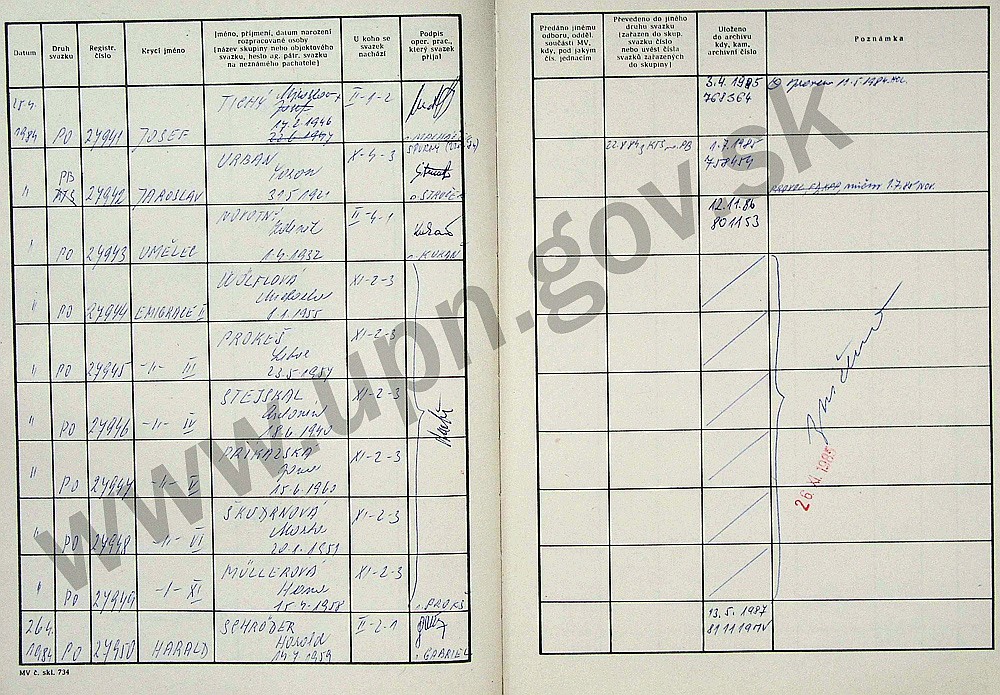 Datum
Druh
svazku
Registr.
číslo
Krycí jméno
Jméno, příjmení, datum narození
rozpracované osoby
(název skupiny nebo objektového
svazku, heslo ag. pátr. svazku
na neznámého pachatele)
U koho se
svazek
nachází
Podpis
oper. prac.,
který svazek
přijal
Předáno jinému
odboru, odděl.
součásti MV,
kdy, pod jakým
čís. jednacím
Převedeno do jiného
druhu svazku
(zařazen do skup.
svazku číslo
nebo uvést čísla
svazků zařazených
do skupiny)
Uloženo
do archivu
kdy, kam,
archivní číslo
Poznámka
25.4.
1984 PO 27941 JOSEF
TICHÝ Miroslav
Josef
17.2.1946
II-1-2
3.4.1985
761364
" PB
27942 JAROSLAV
URBAN
31.5.1921
X-4-3
1.7.1985
758459
" PO 27943 UMĚLEC
NOVOTNÝ
1.4.1932
II-4-1
KUKAŇ
12.11.86
801153
" PO 27944 EMIGRACE II
WÖLFLOVÁ
1.1.1955
XI-2-3
" PO 27945 -"- III
PROKEŠ
Libor
23.5.1957
XI-2-3
" PO 27946 -"- IV
STEJSKAL
Antonín
18.6.1940
XI-2-3
" PO 27947 -"- V
PŘIKAZSKÁ
15.6.1960
XI-2-3
" PO 27948 -"- VI
ŠKUDRNOVÁ
20.1.1959
XI-2-3
" PO 27949 -"- XI
MÜLLEROVÁ
Hana
15.4.1958
XI-2-3
PROKŠ
Zničeno
26.XI.1985
26.4.
1984 PO 27950 HARALD
SCHRÖDER
Harold
14.7.1959
II-2-1
GABRIEL
13.5.1987
811119MV
MV č. skl. 734
www.upn.gov.sk